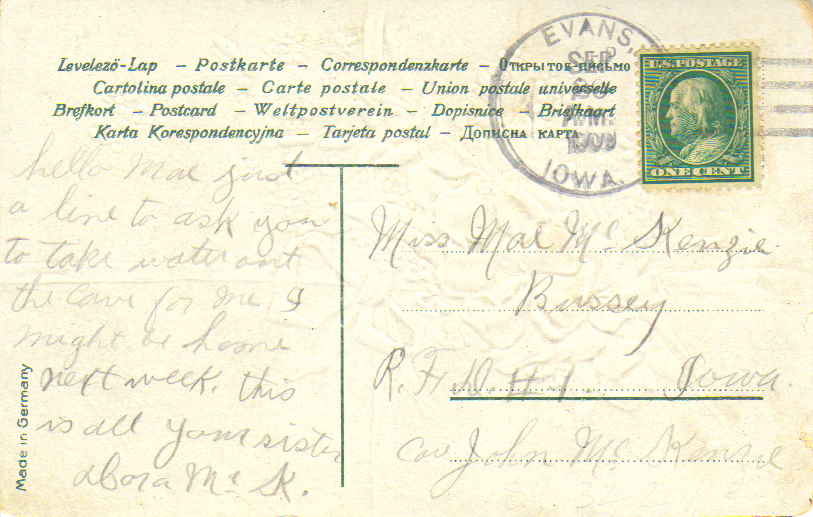 Levelező-Lap – Postkarte – Correspondenzkarte – Открытое письмо
Cartolina postale – Carte postale – Union postale universelle
Brefkort – Postcard – Weltpostverein – Dopisnice – Briefkaart
Karta Korespondencyjna – Tarjeta postal – Дописна карта
EVANS,
SEP
A.M.
1909
IOWA.
U.S. POSTAGE
ONE CENT
hello Mae just
a line to ask you
to take water out
the cave for me I
might be home
next week. this
is all your sister
Dora Mc K.
Miss Mae Mc Kenzie
Bussey
R. F. D. # 1. Iowa.
Care John Mc Kenzie
Made in Germany